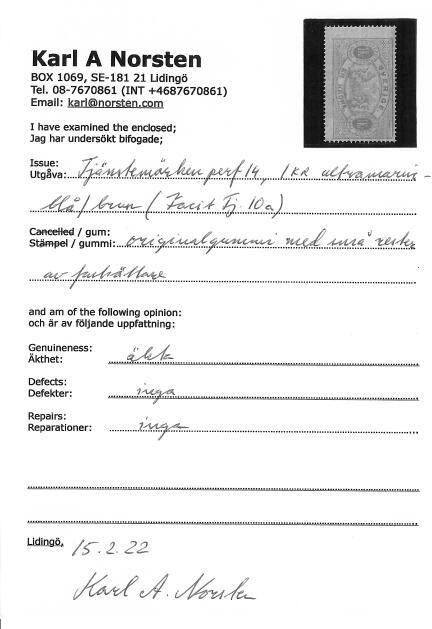 Karl A Norsten
BOX 1069, SE-181 21 Lidingö
Tel. 08-7670861 (INT +4687670861)
Email: karl@norsten.com
I have examined the enclosed;
Jag har undersökt bifogade;
Issue:
Utgåva: Tjänstemärken perf 14, 1 KR ultramarin-
blå/brun (Facit Tj. 10a)
Cancelled / gum:
Stämpel / gummi: originalgummi med små rester
av fasthäftare
and am of the following opinion:
och är av följande uppfattning:
Genuineness:
Äkthet: äkta
Defects:
Defekter: inga
Repairs:
Reparationer: inga
Lidingö, 15.2.22
Karl A. Norsten